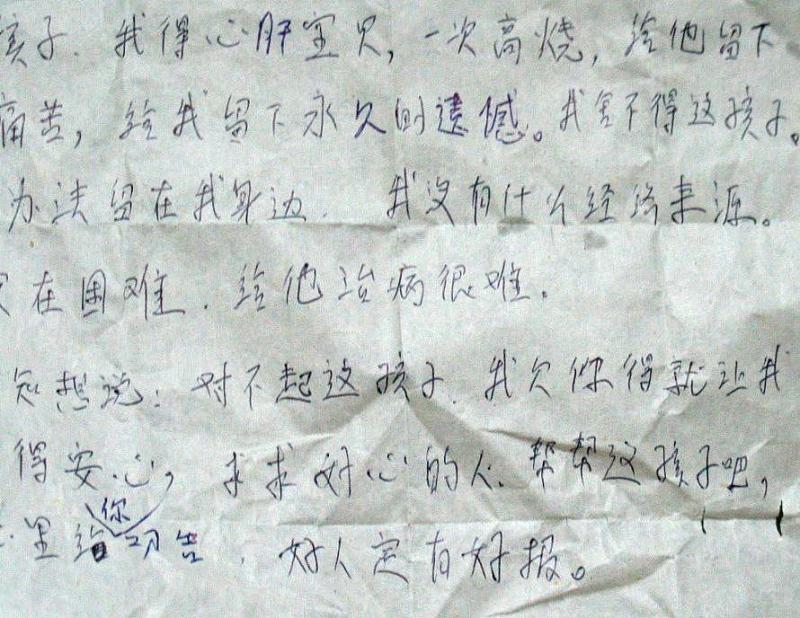 孩子.我得心肝宝贝,一次高烧,给他留下
痛苦,给我留下永久的遗憾。我舍不得这孩子。
办法留在我身边.我没有什么经济来源。
在困难.给他治病很难.
只想说:对不起这孩子.我欠你得就让我
得安心,求求好心的人.帮帮这孩子吧,
里给你叩告.好人定有好报。